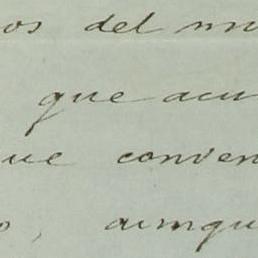 os del mu
que acu
que convien
o, aunqu